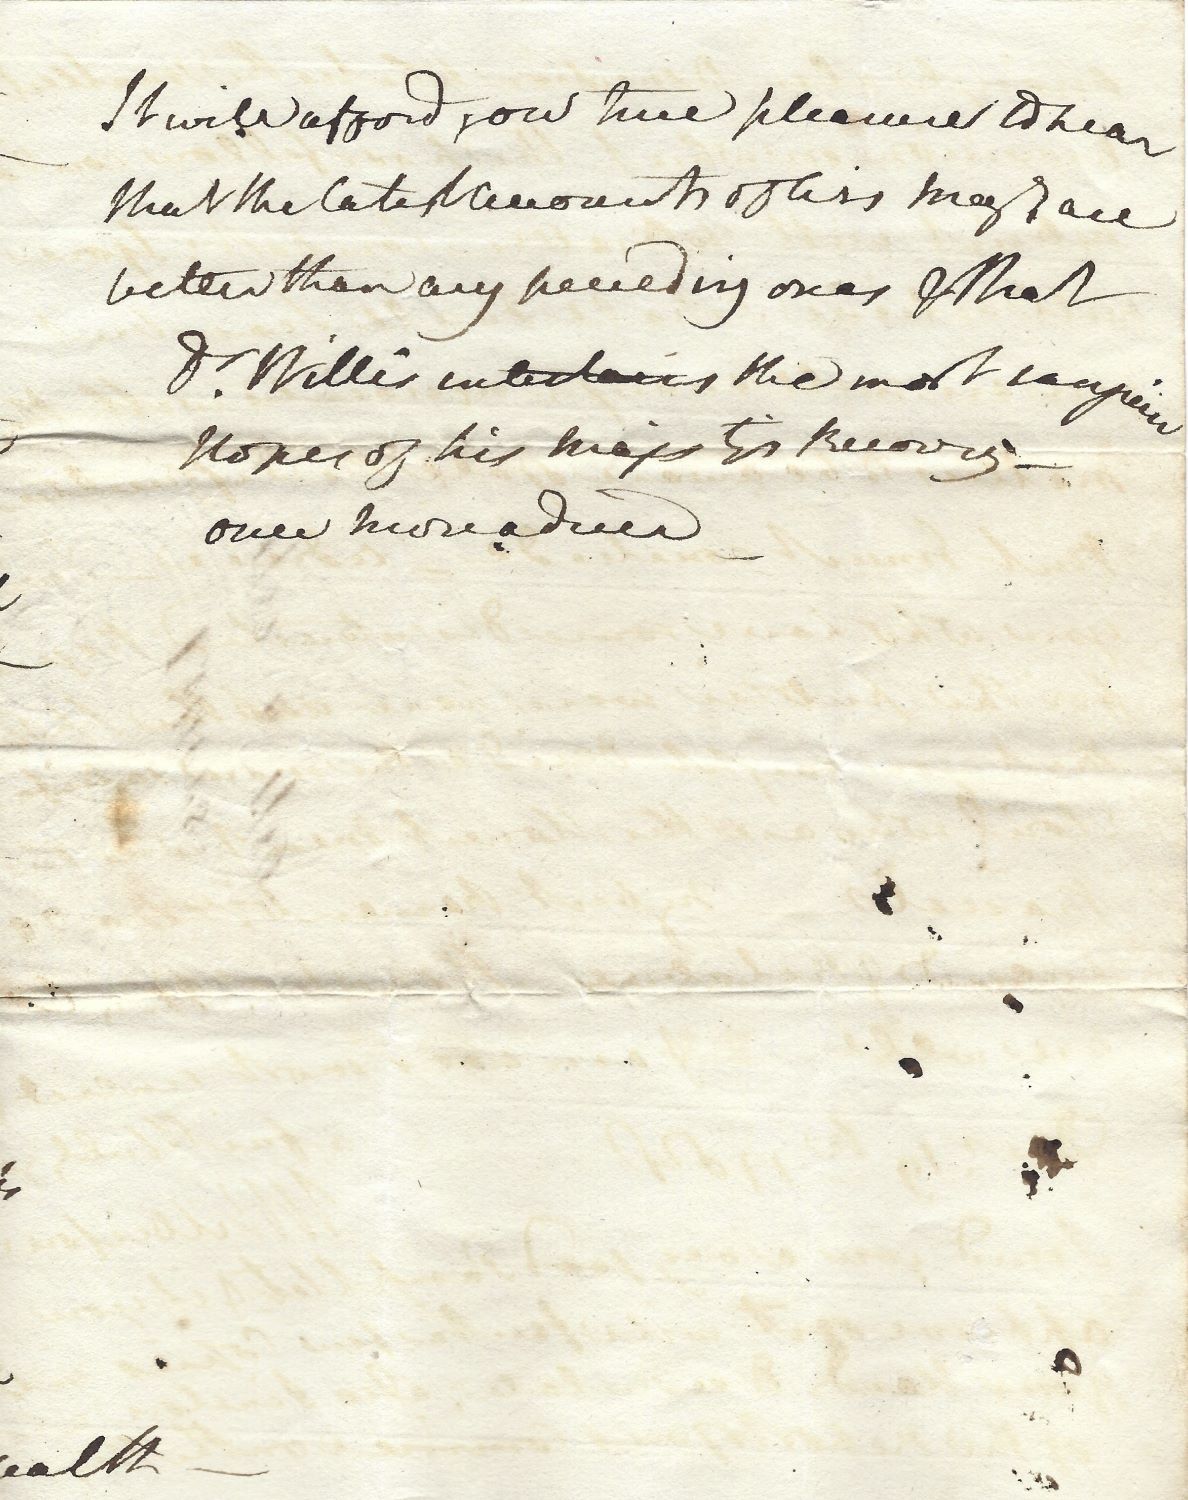 It will afford you true pleasure to hear
that the latest accounts of his Majty are
better than any preceeding ones & that
Dr. Willis entertains the most sanguine
Hopes of his Majesty's Recovery —
once more adieu —
ealth —